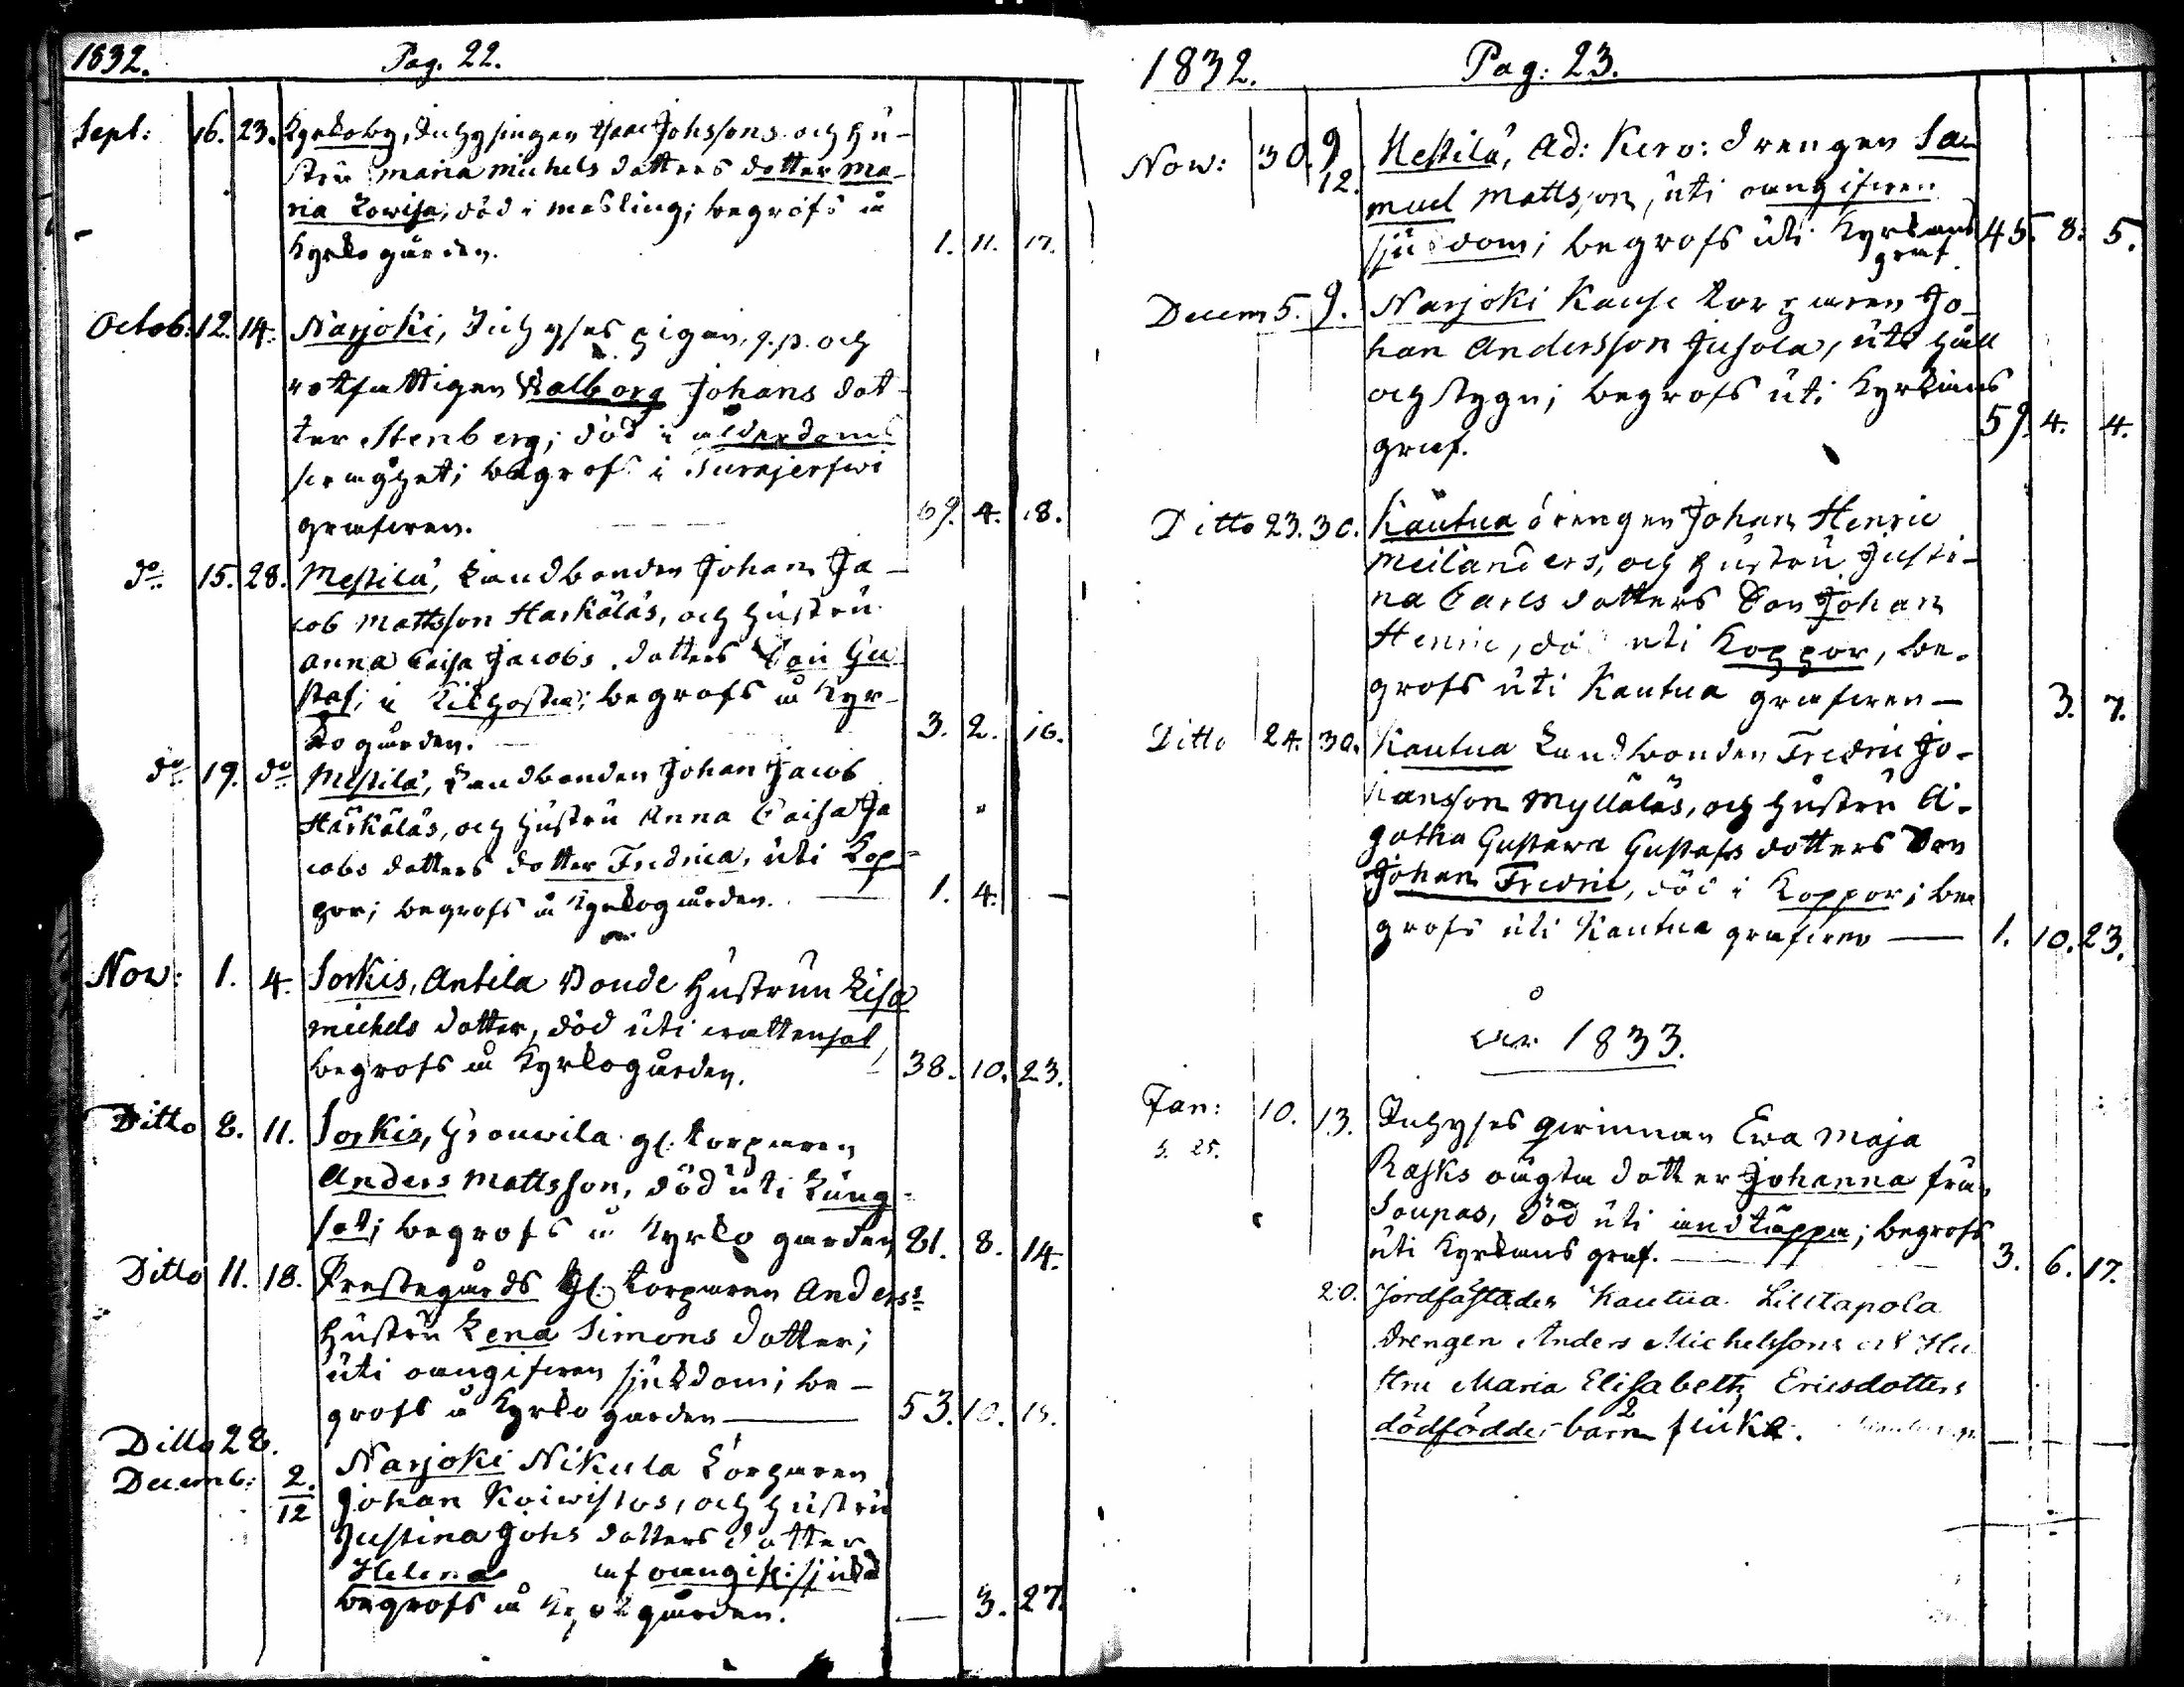 1832. Pag. 22.
Sept: 16. 23. Kyrkoby, Inhysingen Isaac Johssons och hu-
stru Maria Michels dotters dotter Ma-
ria Lowisa, död i mesling; begrofs å
Kyrkogården. 1. 11. 17.
Octob: 12. 14. Narjoki, Inhyses pigan, q.p. och
rotfattigen Walborg Johans dot-
ter Stenberg; död i ålderdoms
swaghet; begrofs i Turajerfwi
grafwen. 69. 4. 18.
do 15. 28. Mestilä, Landbonden Johan Ja-
cob Mattsson Harkäläs, och hustru
Anna Caisa Jacobs dotters Son Gu
staf; i Kikhosta; begrofs å Kyr-
kogården. 3. 2. 16.
do 19. do Mestilä, Landbonden Johan Jacob
Härkäläs, och hustru Anna Caisa Ja
cobs dotters dotter Fredrica, uti Kop-
por; begrofs å Kyrkogården. 1. 4. —
Now: 1. 4. Sorkis, Antila Bonde hustrun Lisa
Michels dotter, död uti wattensot,
begrofs å Kyrkogården. 38. 10. 23.
Ditto 8. 11. Sorkis, gl. torparen
Anders Mattsson, död uti Lung-
sot; begrofs å Kyrkogården 81. 8. 14.
Ditto 11. 18. Prestegårds gl. torparen Anderss
hustru Lena Simons dotter;
uti oangifwen sjukdom; be-
grofs å Kyrkogården — 53. 10.
Ditto 28.
Decemb: 2/12 Narjoki Nikula torparen
Johan Koiwistos, och hustru
Justina Johs dotters dotter
Helena af oangif: sjukd
begrofs å Kyrkogården. — 3. 27.
1832. Pag: 23.
Now: 30. 9/12. Mestilä, Ad: Kero: drengen Sa-
muel Mattsson, uti oangifwen
sjukdom; begrofs uti Kyrkans
graf. 45. 8. 5.
Decem 5. 9. Narjoki Kause torparen Jo-
han Andersson Jusola, uti håll
och stygn; begrofs uti Kyrkans
graf. 59. 4. 4.
Ditto 23. 30. Kautua drengen Johan Henric
Meilanders, och hustru Justi-
na Carls dotters Son Johan
Henric, död uti Koppor, be-
grofs uti Kautua grafwen — 3. 7.
Ditto 24. 30. Kautua Landbonden Fredric Jo-
hansson Myllöläs, och hustru A-
gatha Gustawa Gustafs dotters Son
Johan Fredric, död i Koppor; be
grofs uti Kautua grafwen — 1. 10. 23.
år 1833.
Jan: 10. 13. Inhyses qwinnan Ewa Maja
s. 25.
Rasks oägta dotter Johanna från
Soupas, död uti andtäppa; begrofs
uti Kyrkans graf. — 3. 6. 17.
20. Jordfästades Kautua Lilltapola
drengen Anders Michelssons och Hu
stru Maria Elisabeth Ericsdotters
dödfödde barn flicka. 2